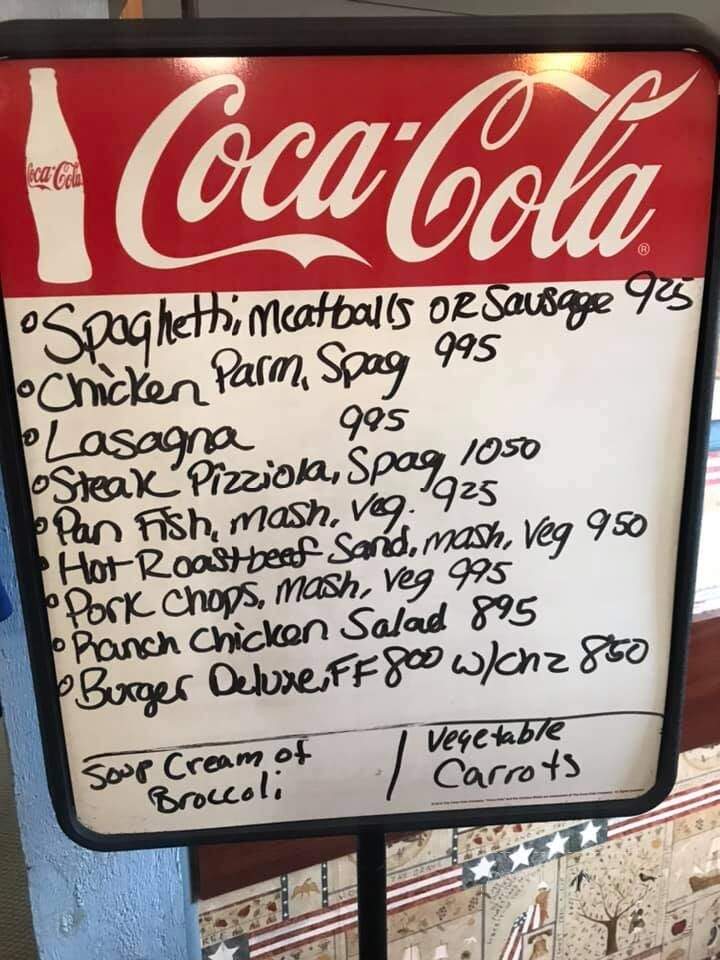 Coca-Cola
Coca-Cola®
°Spaghetti, Meatballs OR Sausage 925
°Chicken Parm, Spag 995
°Lasagna 995
°Steak Pizziola, Spag 1050
°Pan Fish, mash, veg. 925
°Hot Roastbeef Sand, mash, Veg 950
°Pork Chops, mash, veg 995
°Ranch Chicken Salad 895
°Burger Deluxe, FF 800 w/chz 850
Soup Cream of
Broccoli
/ Vegetable
Carrots